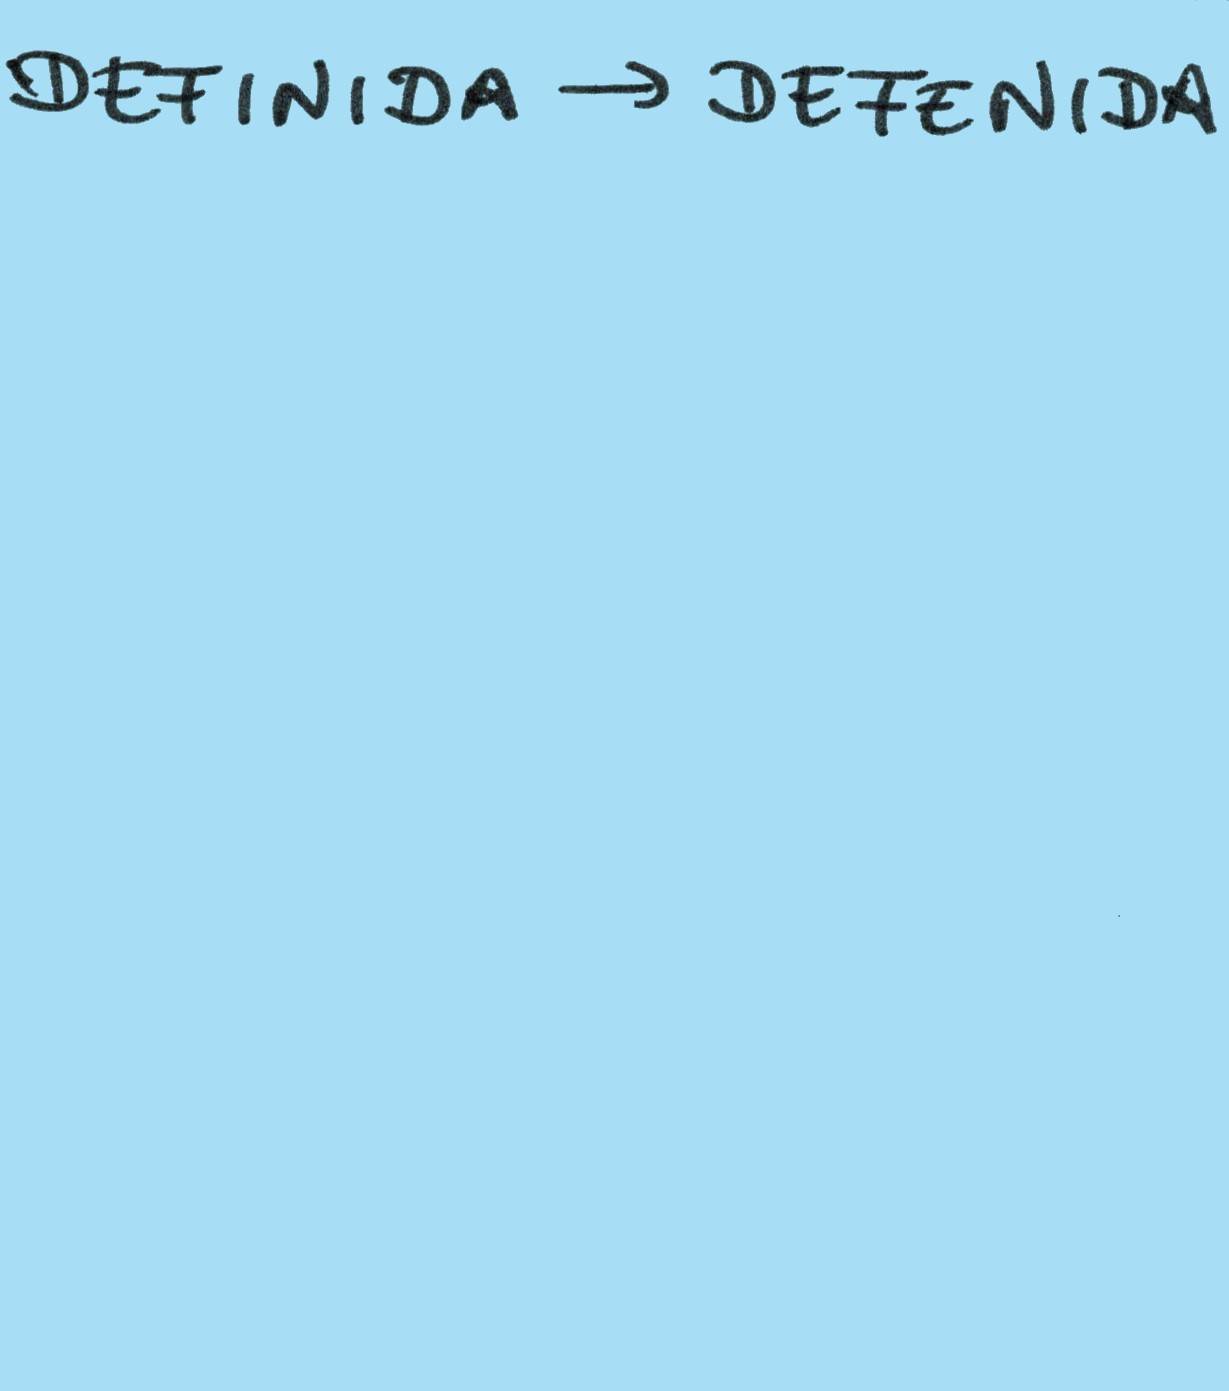 DEFINIDA → DEFENIDA